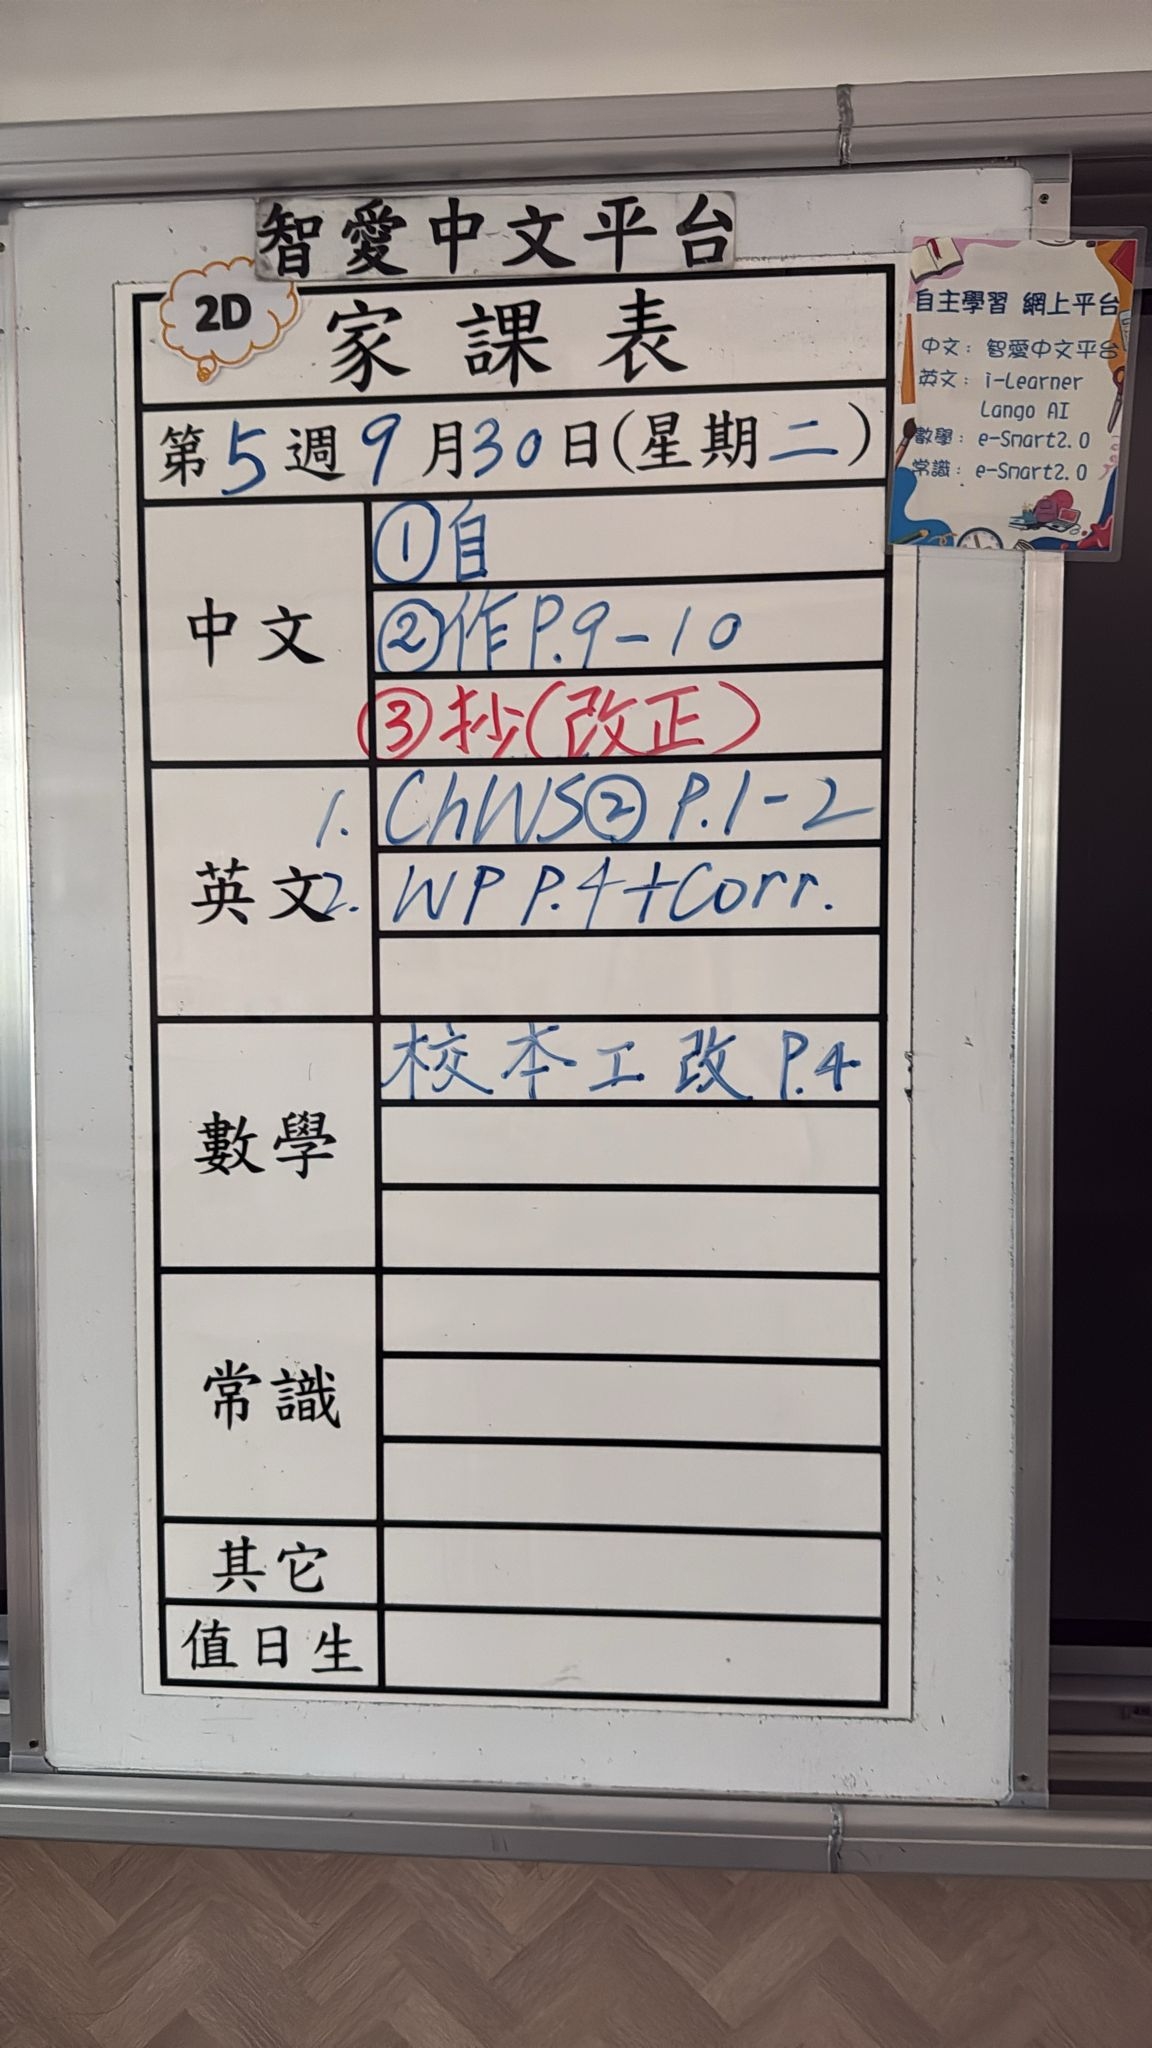 智愛中文平台
2D
家課表
第5週9月30日(星期二)
中文
①自
②作P.9-10
③抄(改正)
英文
1. ChWS② P.1-2
2. WP P.4+Corr.
數學
校本工改 P.4
常識
其它
值日生
自主學習 網上平台
中文：智愛中文平台
英文：i-Learner
Lango AI
數學：e-Smart2.0
常識：e-Smart2.0